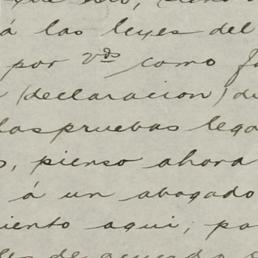 á las leyes del
por vds como
(declaracion) de
las pruebas lega
, pienso ahora
á un abogado
iento aqui, pa
de acuerdo